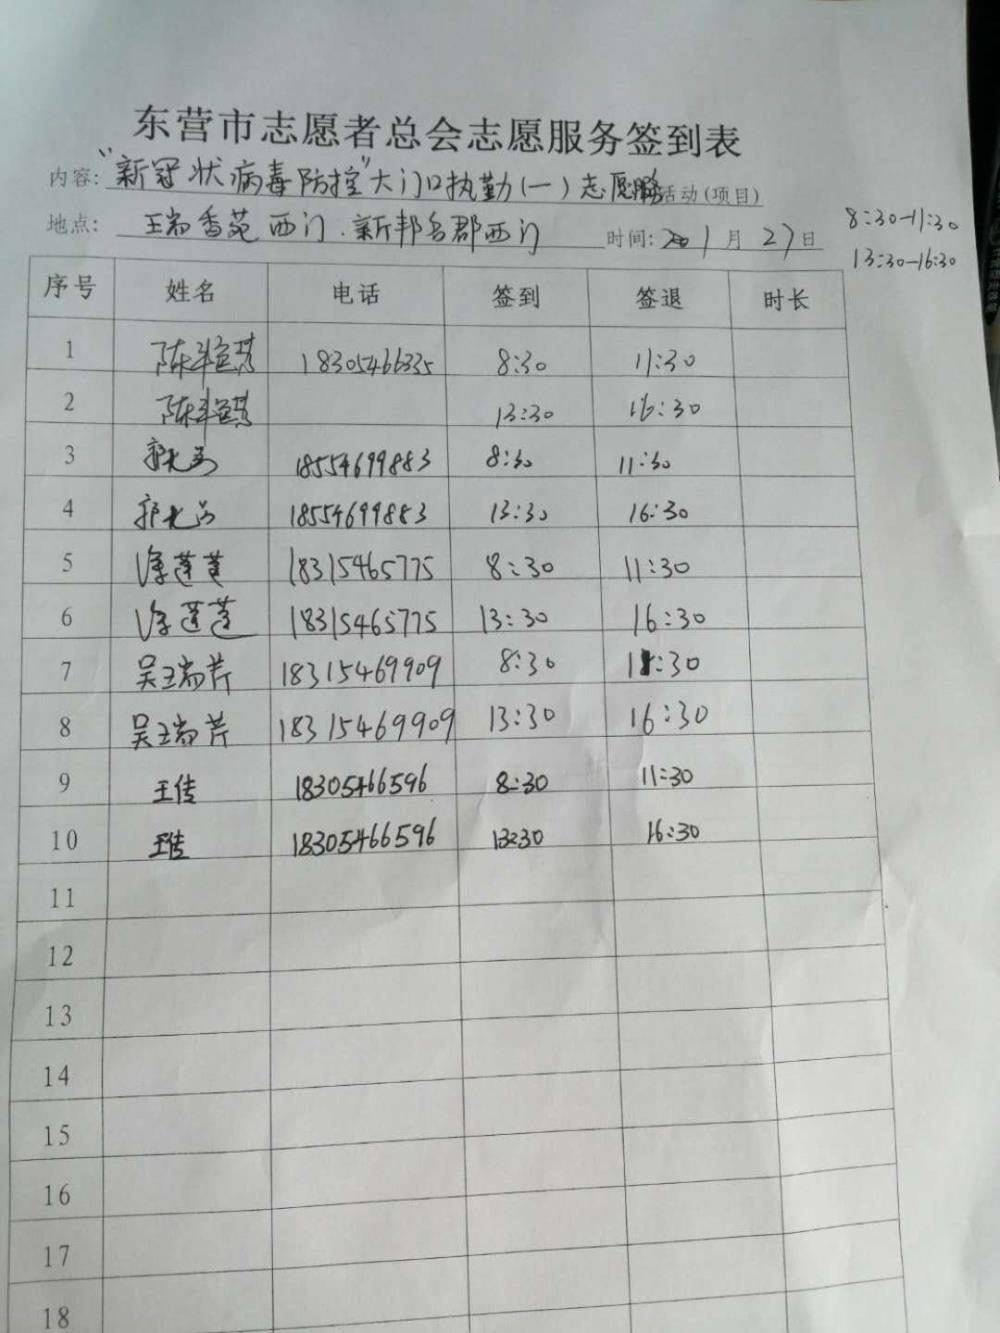 东营市志愿者总会志愿服务签到表
内容: "新冠状病毒防控"大门口执勤(一)志愿 活动(项目)
地点: 瑞香苑西门.新邦名郡西门 时间: 1月27日
8:30-11:30
13:30-16:30
序号 姓名 电话 签到 签退 时长
1 陈 18305466335 8:30 11:30
2 陈 13:30 16:30
3 郭 18554699883 8:30 11:30
4 郭 18554699883 13:30 16:30
5 莲莲 18315465775 8:30 11:30
6 莲莲 18315465775 13:30 16:30
7 吴瑞芹 18315469909 8:30 11:30
8 吴瑞芹 18315469909 13:30 16:30
9 王传 18305466596 8:30 11:30
10 王传 18305466596 13:30 16:30
11
12
13
14
15
16
17
18